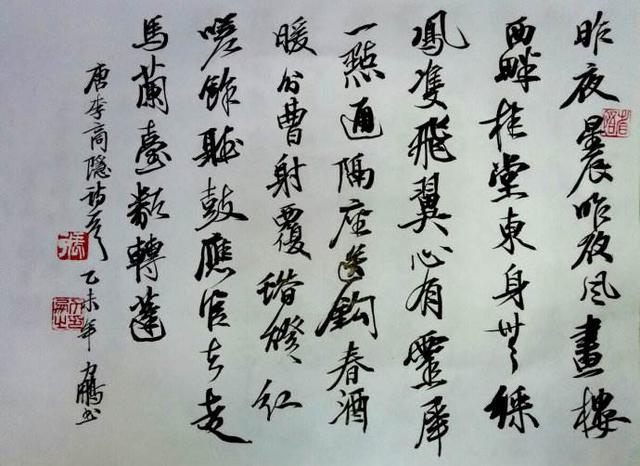 昨夜星辰昨夜风畫樓
西畔桂堂東身無綵
鳳雙飛翼心有靈犀
一點通隔座送鈎春酒
暖分曹射覆蠟燈紅
嗟餘聽鼓應官去走
馬蘭臺類轉蓬
唐李商隐詩 乙未年 鵬书